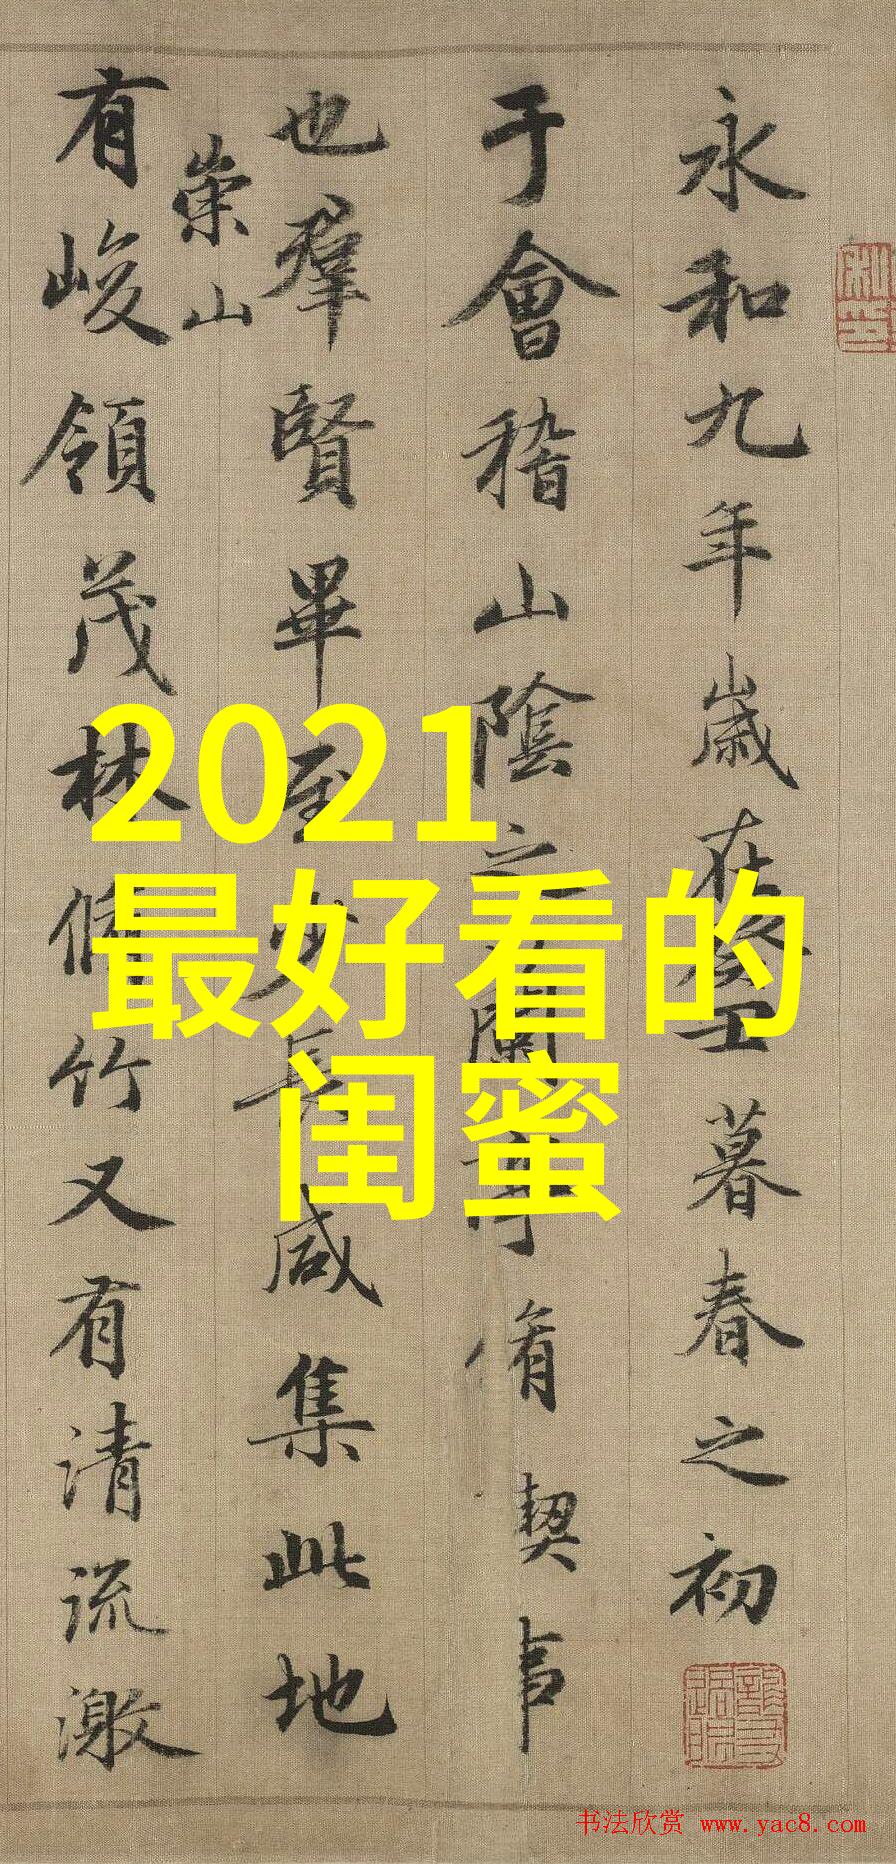 永和九年歲在癸丑暮春之初
于會稽山陰之蘭亭脩禊事
也羣賢畢至少長咸集此地
崇山
有峻領茂林脩竹又有清流激
2021
最好看的
闺蜜
书法欣赏 www.yac8.com